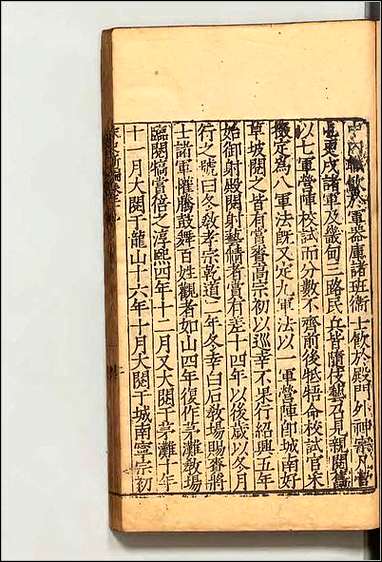 軍器庫諸班衛士飲於殿門外神宗
更戍諸軍及畿甸三路民兵皆隨伎藝召見親閱
以七軍營陣校試而分數不齊前後牴牾命校試官采
定為八軍法旣又定九軍法以一軍營陣即城南好
草坡閱之皆有賞賚高宗初以巡幸不果行紹興五年
始御射殿閱射藝精者賞有差十四年以後歲以冬月
行之號曰冬敎孝宗乾道二年冬幸白石敎場賜賚將
士諸軍懽騰鼓舞百姓觀者如山四年復作茅灘敎場
臨閱犒賞倍之淳熙四年十二月又大閱于茅灘十年
十一月大閱于龍山十六年十月大閱于城南寧宗初
宋史新編卷